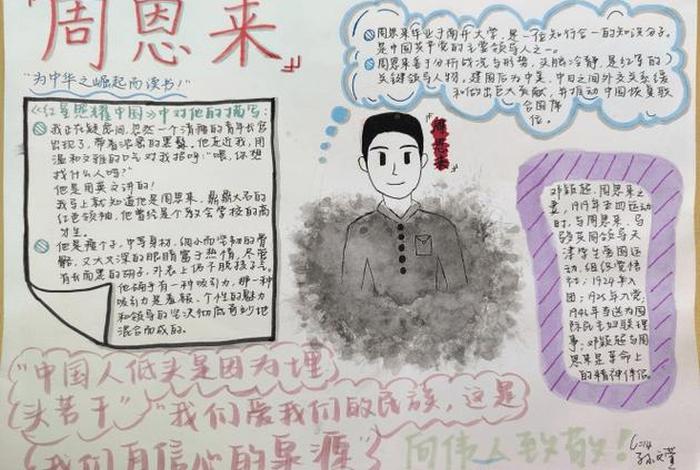 周恩来
"为中华之崛起而读书!"
《红星照耀中国》中对他的描写:
我正在疑房间,忽然一个清瘦的青年长官
出现了,带着浓密的黑髯。他走近我,用
温和文雅的口气对我招呼:"喂,你想
找什么人吗?"
他是用英文讲的!
我马上就知道他是周恩来,鼎鼎大名的
红色领袖,他曾经是个教会学校的高
才生。
他是瘦个子,中等身材,细小而坚韧的骨
骼,又大又深的眼睛富于热情,尽管
有长而黑的胡子,外表上仍不脱孩子气。
他确乎有一种吸引力,那一种
吸引力是羞赧、个性的魅力
和领导的坚决彻底奇妙地
混合而成的。
周恩来毕业于南开大学,是一位知行合一的知识分子。
是中国共产党的主要领导人之一。
周恩来善于分析战况与形势,头脑冷静,是红军的
关键领导人物。建国后为中美、中日之间外交关系缓
和做出巨大贡献,并推动中国恢复联
合国席
位。
周恩来
邓颖超,周恩来之
妻,1919年五四运动
时,与周恩来、马
骏等共同领导天
津学生爱国运
动,组织觉悟
社;1924年入
团;1925年入党;
国际民主妇联理
事;邓颖超与周
恩来是革命上
的精神伴侣。
"中国人低头是因为埋
头苦干" "我们爱我们的民族,这是
我们自信心的泉源"
向伟人致敬!